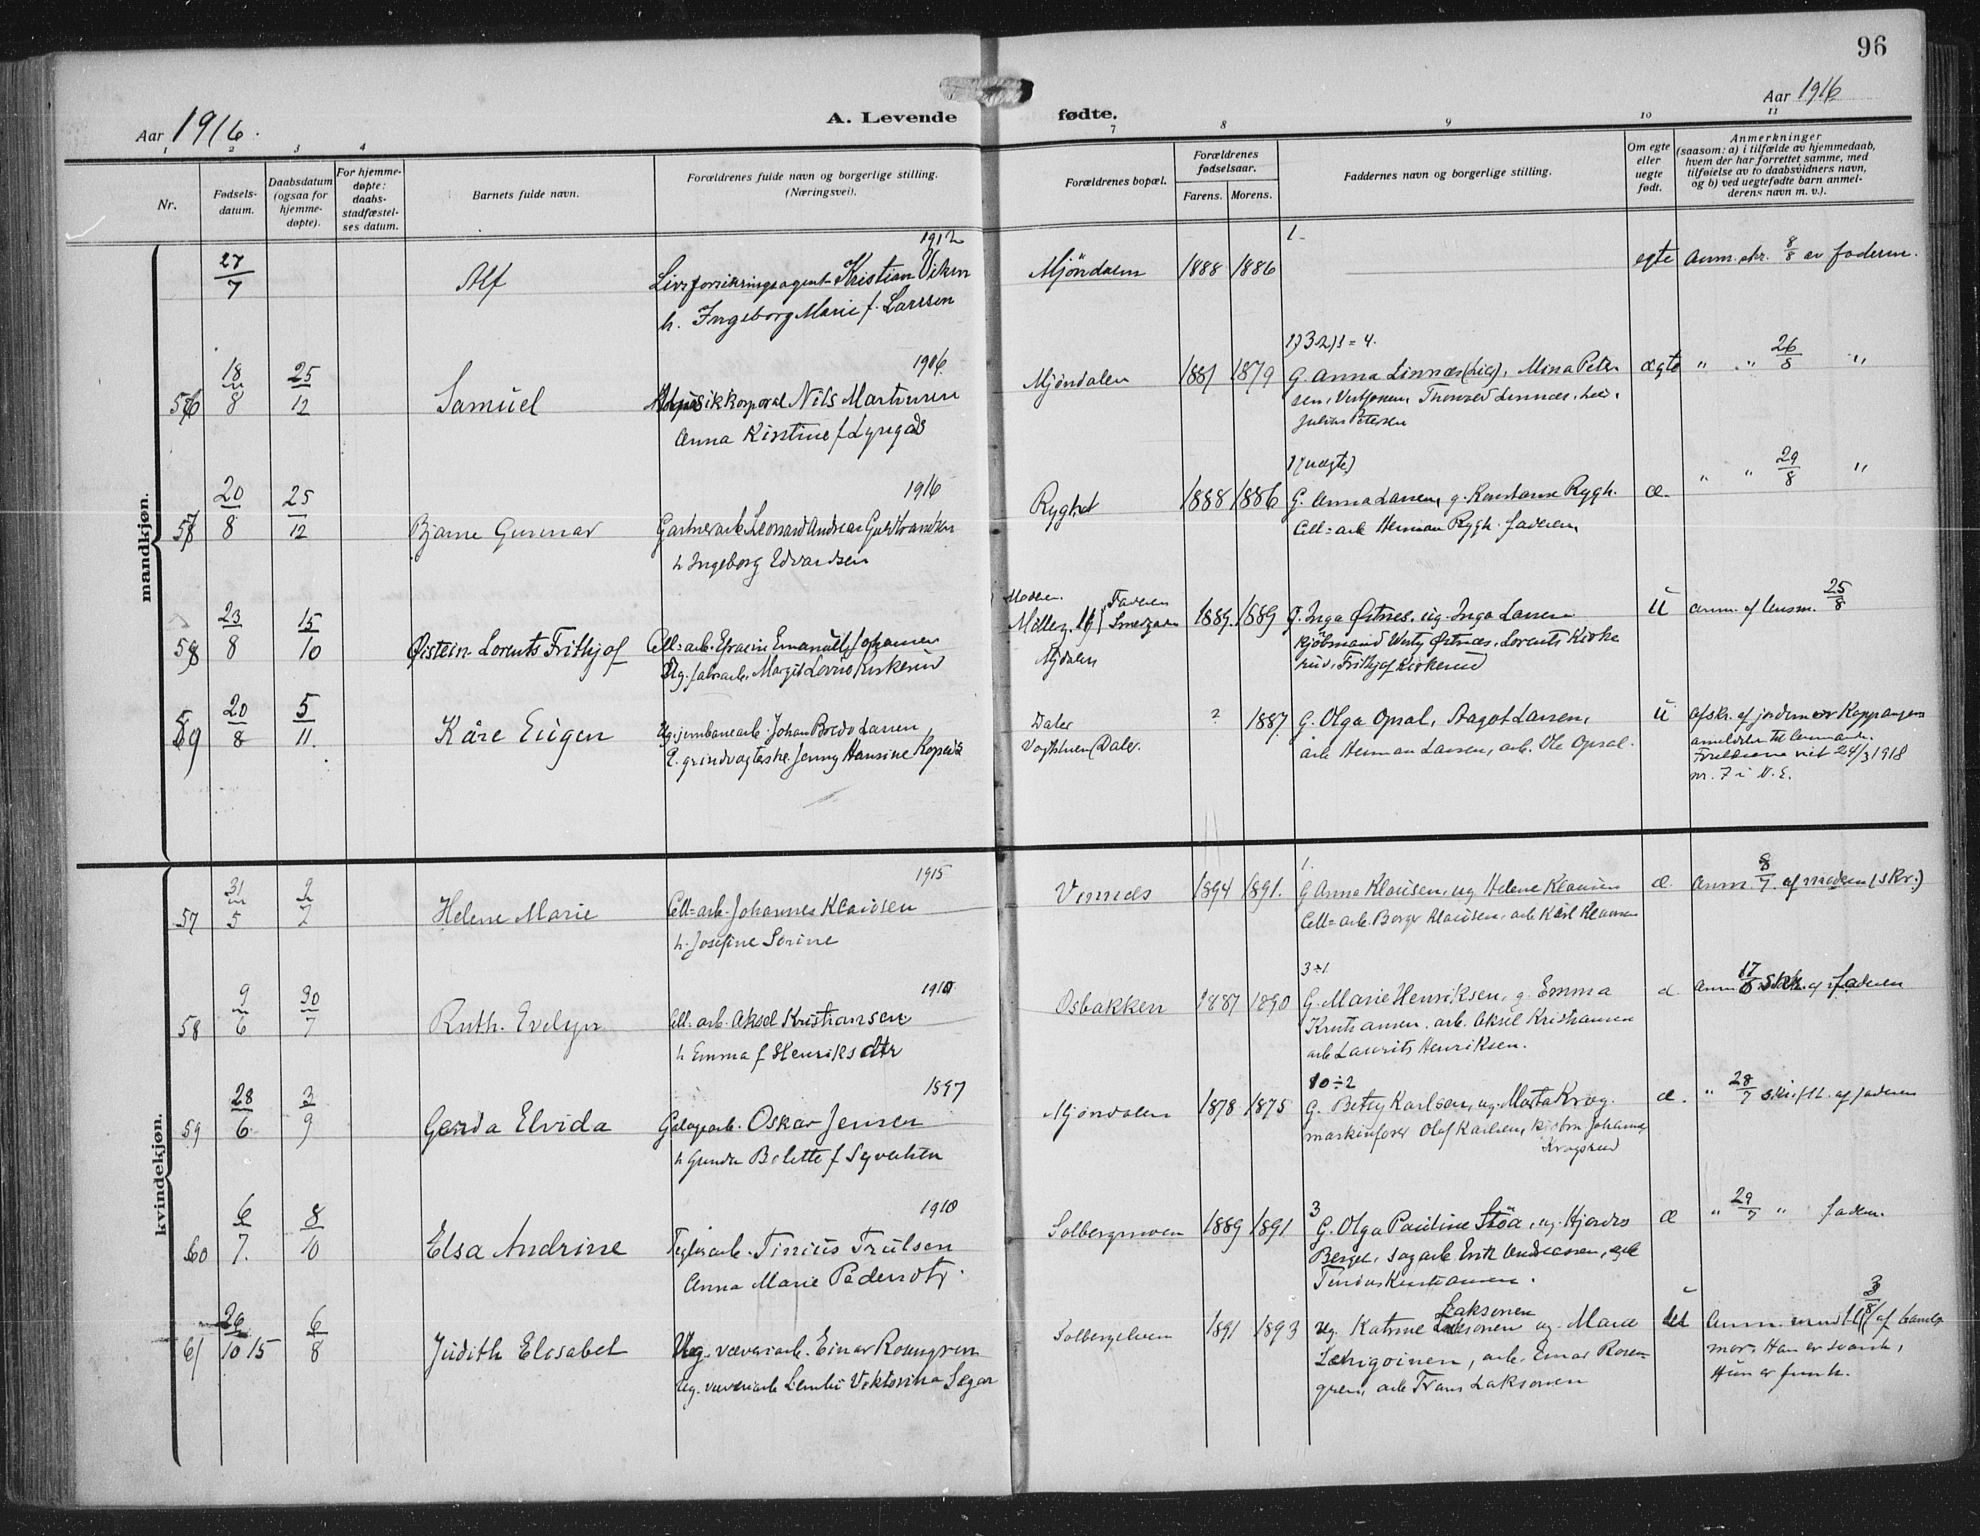 96
Aar 1916.
A. Levende fødte.
Aar 1916
1 2 3 4 7 8 9 10 11
Nr.
Fødsels-datum.
Daabsdatum (ogsaa for hjemme-døpte).
For hjemme-døpte: daabs-stadfæstel-ses datum.
Barnets fulde navn.
Forældrenes fulde navn og borgerlige stilling.
(Næringsvei).
Forældrenes bopæl.
Forældrenes fødselsaar.
Farens. Morens.
Faddernes navn og borgerlige stilling.
Om egte eller uegte født.
Anmerkninger
(saasom: a) i tilfælde av hjemmedaab,
hvem der har forrettet samme, med
tilføielse av to daabsvidners navn,
og b) ved uegtefødte barn anmel-
derens navn m. v.).
mandkjøn.
27/7 Alf 1912
Livsforsikringsagent Kristian Viken
h. Ingeborg Marie f. Larssen
Mjöndalen 1888 1886 1. egte Anm. skr. 8/8 av faderen.
56 18/8 25/12 Samuel 1906
Musikkorporal Nils Martinsen
Anna Kirstine f Lyngås
Mjøndalen 1881 1879 1)3 2)1 = 4.
G. Anna Linnæs (Lier), Mina Peter
sen, Vestfossen, Thorvald Linnæs, Lier,
Julius Petersen
ægte " " 26/8 "
57 20/8 25/12 Bjarne Gunnar 1916
Gartnerarb. Leonard Andreas Guldbrandsen
h Ingeborg Edvardsen
Ryghet 1888 1886 1 (uægte)
G. Anna Larsen, g. Konstanse Rygh.
Cell=arb Herman Rygh. faderen,
æ. " " 29/8 "
58 23/8 15/10 Øistein Lorents Frithjof
Cell=arb. Efraim Emanuel Johansen
Ug. fabrarb. Margit Lovise Kirkerud
Moderen. Faderen
Mjdalen
1889. 1889 G. Inga Østnes, ug. Inga Larsen
kjöbmand Westy Østnæs, Lorents Kirke
rud, Frithjof Kirkerud
u anm. af lensm. 25/8
59 20/8 5/11. Kåre Eugen
Ug. jernbanearb. Johan Bredo Larsen
E. grindvogterske Jenny Hansine
Daler
? 1887. G. Olga Opsal, Aagot Larsen,
arb Herman Larsen, arb. Ole Opsal.
u Afskr. af jordemor Koppangens
anmeldelse til lensmanden.
Forældrene viet 24/3 1918
nr. 7 i V. E.
kvindekjøn.
57 31/5 2/7 Helene Marie 1915
Cell=arb. Johannes Klausen
h. Josefine Sorine
Vinnes 1894 1891. 1.
G Anna Klausen, ug Helene Klausen
Cell=arb. Borger Klausen, arb Karl Klausen
æ. Anm. 8/7. af moderen (skr.)
58 9/6 30/7 Ruth. Evelyn 1910
Cell=arb. Aksel Kristiansen
h Emma f Henriksdtr
Osbakken 1887 1890 3÷1
G. Marie Henriksen, g. Emma
Kristiansen, arb. Aksel Kristiansen
arb Laurits Henriksen.
æ. Anm 17/6 skr. af faderen
59 28/6 3/9 Gerda Elvida 1897
Galagearb. Oskar Jensen
h Gunda Bolette f Syvertsen
Mjøndalen 1878 1875 10÷2
G. Betsy Karlsen, ug. Marta Krog.
maskinfører Olaf Karlsen, Johannes
Krogsrud
æ. " 28/7 skriftl. af faderen
60 6/7. 8/10 Elsa Andrine 1910
Teglvarb. Tinius Trulsen
Anna Marie Pedersdtr.
Solbergmoen 1889 1891 3
G. Olga Pauline Støa, ug. Hjørdis
Berger, sagarb Erik Andreassen, arb
Tinius Kristiansen.
æ " 29/7 " faderen.
61 26/10 15 6/8 Judith Elisabet
Ug. væveriarb. Einar Rosengren
Ug. væveriarb Lembi Viktorina Segar
Solbergelven 1891 1893
Ug. Katrine Laksonen ug. Maria
arb. Einar Rosen-
gren, arb Frans Laksonen
u Anm. mundtl. 3/8 af barnets
mor. Han er svensk,
Hun er finsk.